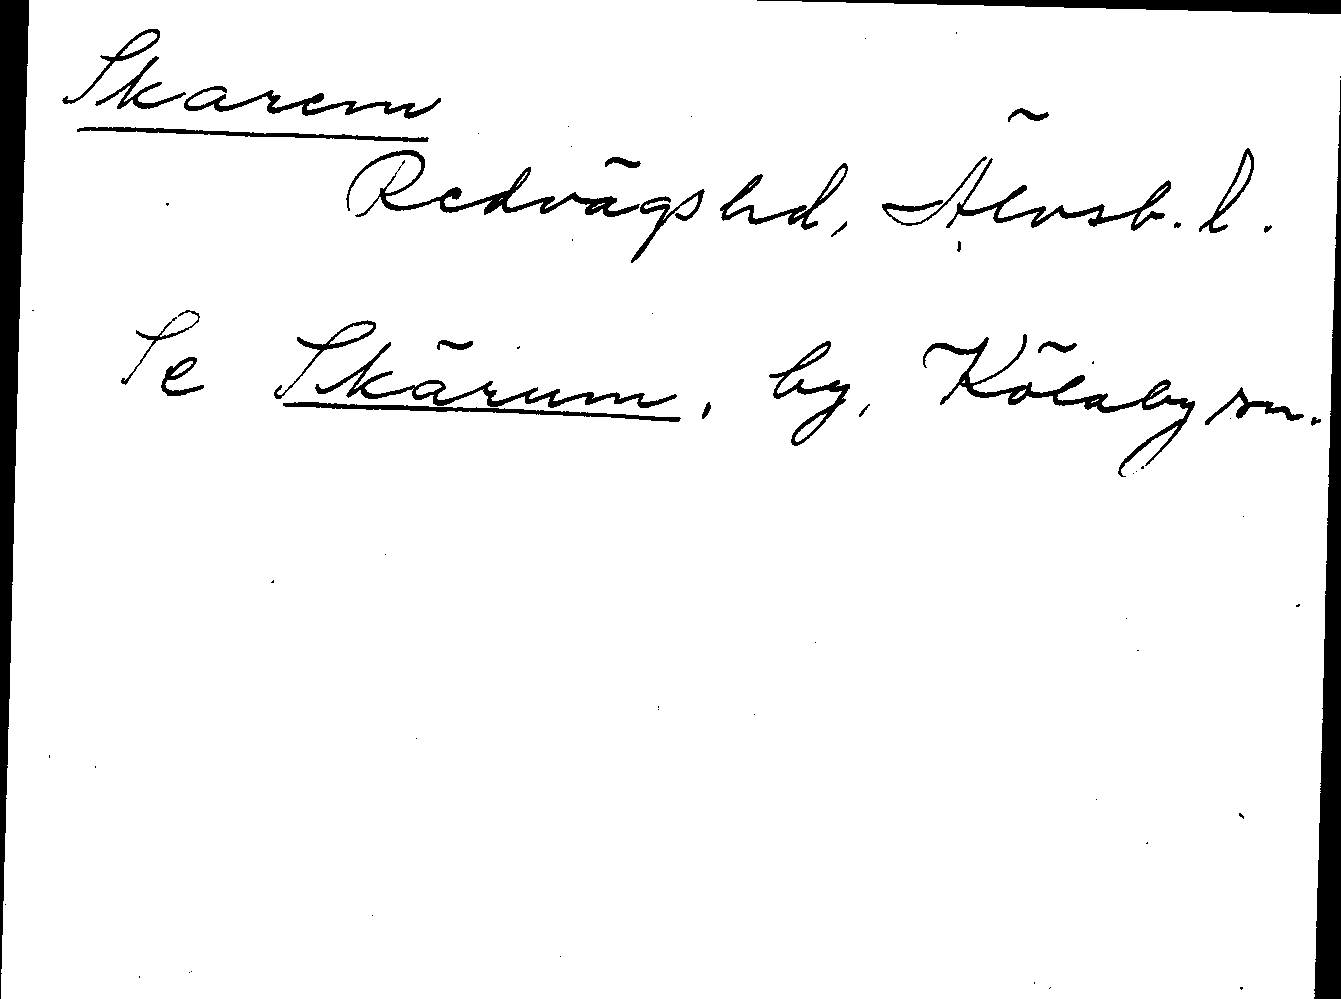 Skarem
Redvägs hd, Älvsb. l.
Se Skärum, by, Kölaby sn.